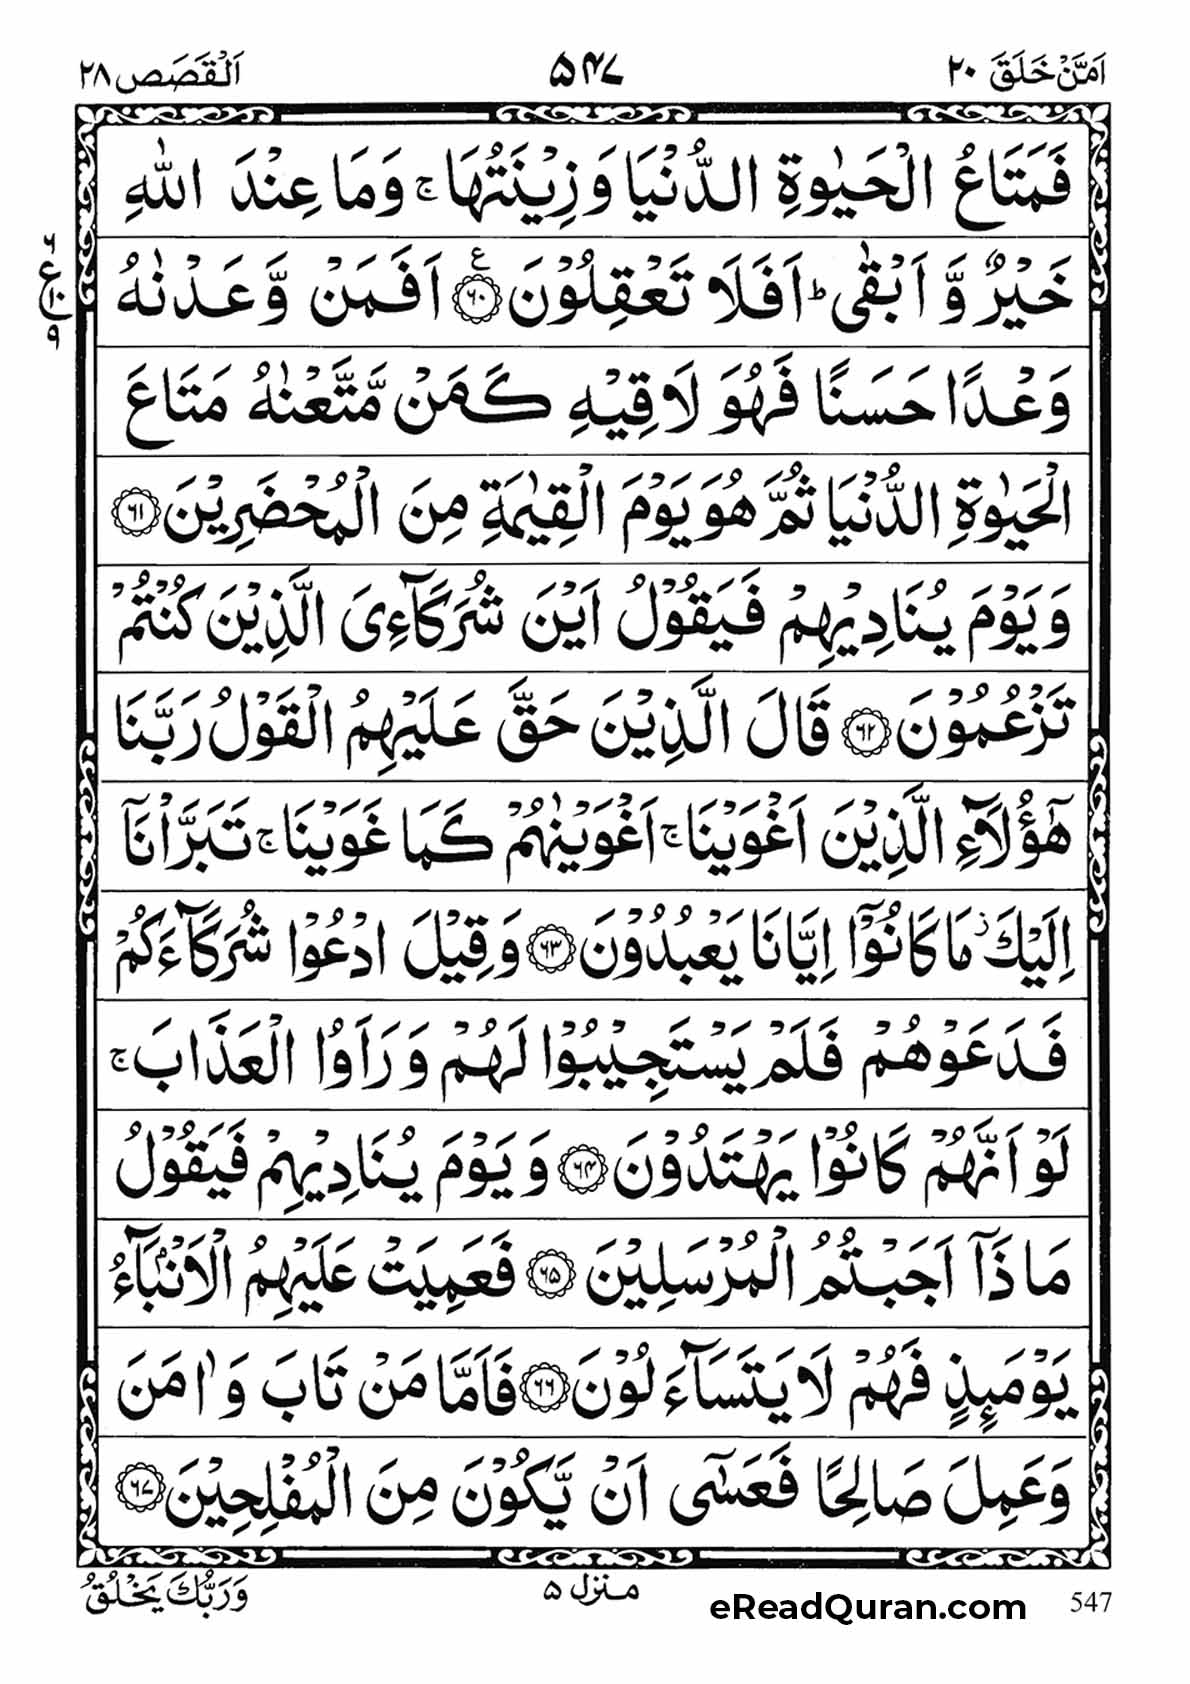 اَمَّنْ خَلَقَ ۲۰
۵۴۷
اَلْقَصَص ۲۸
فَمَتَاعُ الْحَيٰوةِ الدُّنْيَا وَزِيْنَتُهَا ۚ وَمَا عِنْدَ اللّٰهِ
خَيْرٌ وَّ اَبْقٰى ؕ اَفَلَا تَعْقِلُوْنَ ﴿۶۰﴾ اَفَمَنْ وَّعَدْنٰهُ
وَعْدًا حَسَنًا فَهُوَ لَاقِيْهِ كَمَنْ مَّتَّعْنٰهُ مَتَاعَ
الْحَيٰوةِ الدُّنْيَا ثُمَّ هُوَ يَوْمَ الْقِيٰمَةِ مِنَ الْمُحْضَرِيْنَ ﴿۶۱﴾
وَيَوْمَ يُنَادِيْهِمْ فَيَقُوْلُ اَيْنَ شُرَكَآءِىَ الَّذِيْنَ كُنْتُمْ
تَزْعُمُوْنَ ﴿۶۲﴾ قَالَ الَّذِيْنَ حَقَّ عَلَيْهِمُ الْقَوْلُ رَبَّنَا
هٰٓؤُلَآءِ الَّذِيْنَ اَغْوَيْنَا ۚ اَغْوَيْنٰهُمْ كَمَا غَوَيْنَا ۚ تَبَرَّاْنَاۤ
اِلَيْكَ ؗ مَا كَانُوْۤا اِيَّانَا يَعْبُدُوْنَ ﴿۶۳﴾ وَقِيْلَ ادْعُوْا شُرَكَآءَكُمْ
فَدَعَوْهُمْ فَلَمْ يَسْتَجِيْبُوْا لَهُمْ وَرَاَوُا الْعَذَابَ ۚ
لَوْ اَنَّهُمْ كَانُوْا يَهْتَدُوْنَ ﴿۶۴﴾ وَيَوْمَ يُنَادِيْهِمْ فَيَقُوْلُ
مَاذَاۤ اَجَبْتُمُ الْمُرْسَلِيْنَ ﴿۶۵﴾ فَعَمِيَتْ عَلَيْهِمُ الْاَنْۢبَآءُ
يَوْمَئِذٍ فَهُمْ لَا يَتَسَآءَلُوْنَ ﴿۶۶﴾ فَاَمَّا مَنْ تَابَ وَاٰمَنَ
وَعَمِلَ صَالِحًا فَعَسٰٓى اَنْ يَّكُوْنَ مِنَ الْمُفْلِحِيْنَ ﴿۶۷﴾
۶
ع
۱۰
۹
منزل ۵
وَرَبُّكَ يَخْلُقُ
eReadQuran.com
547